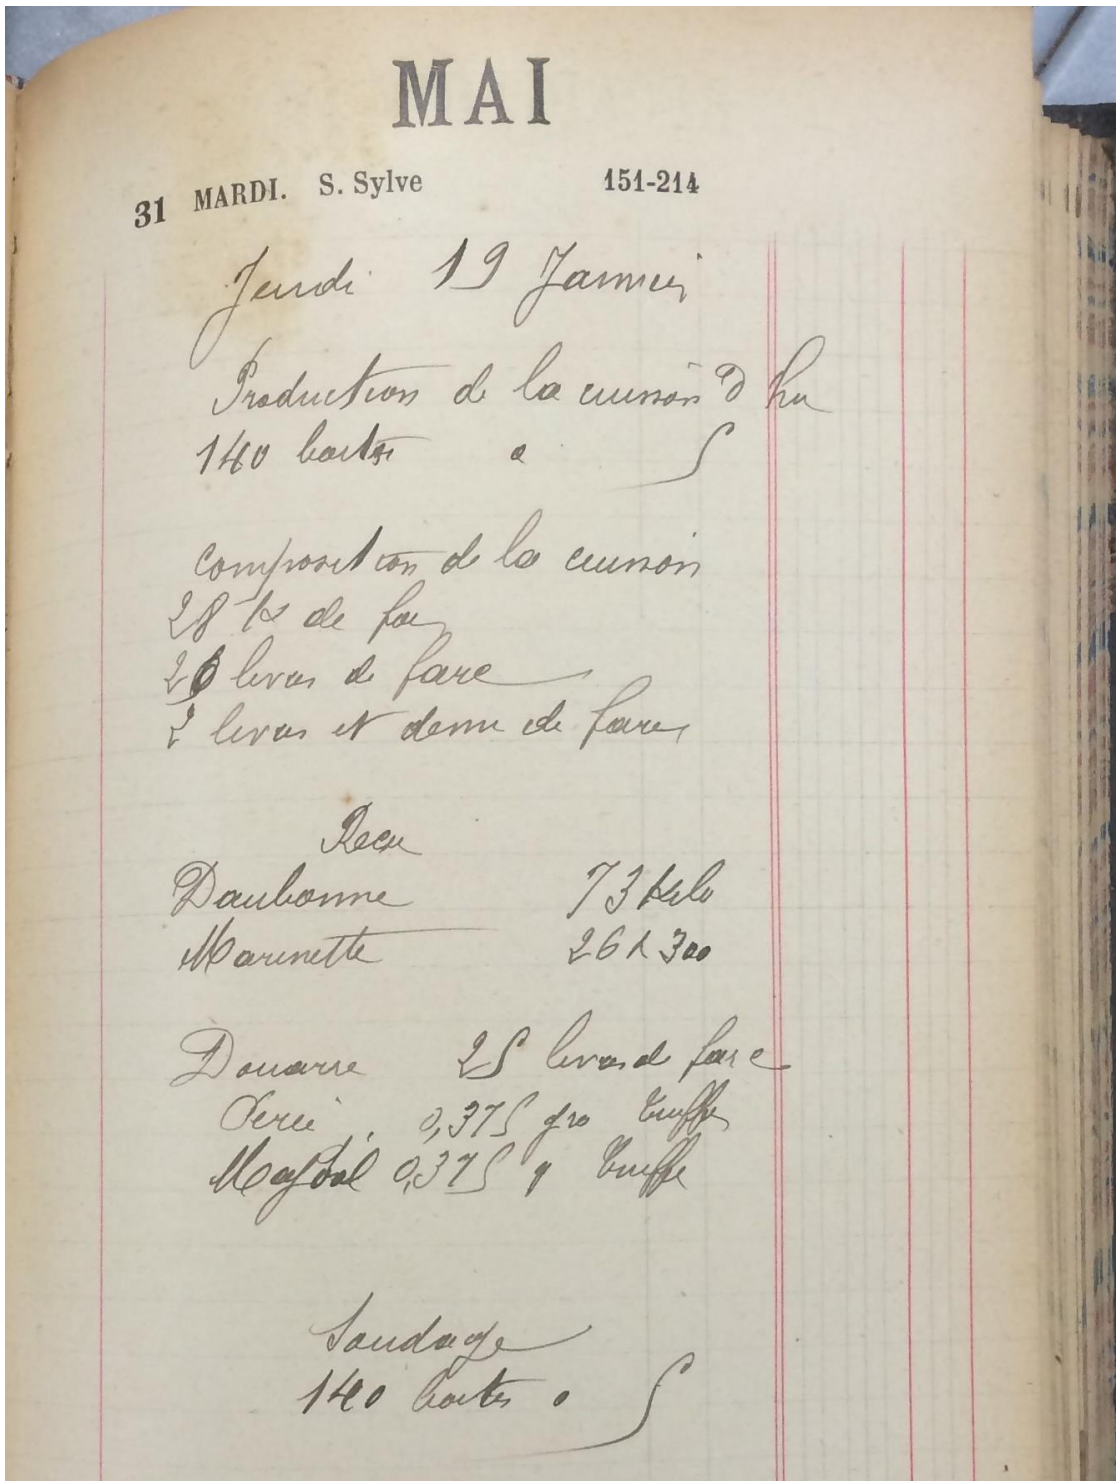 MAI
31 MARDI. S. Sylve 151-214
Jeudi 19 Janvier
Production de la cuisson D hu
140 boites a 5
composition de la cuisson
28 K de foie
26 levas de farc
2 levas et demi de farc
Recu
Daubonne 73 Kilo
Marinette 26 k 300
Douarre 25 levas de farc
0,375 gro truffes
0,375 g truffe
Soudage
140 boites a 5